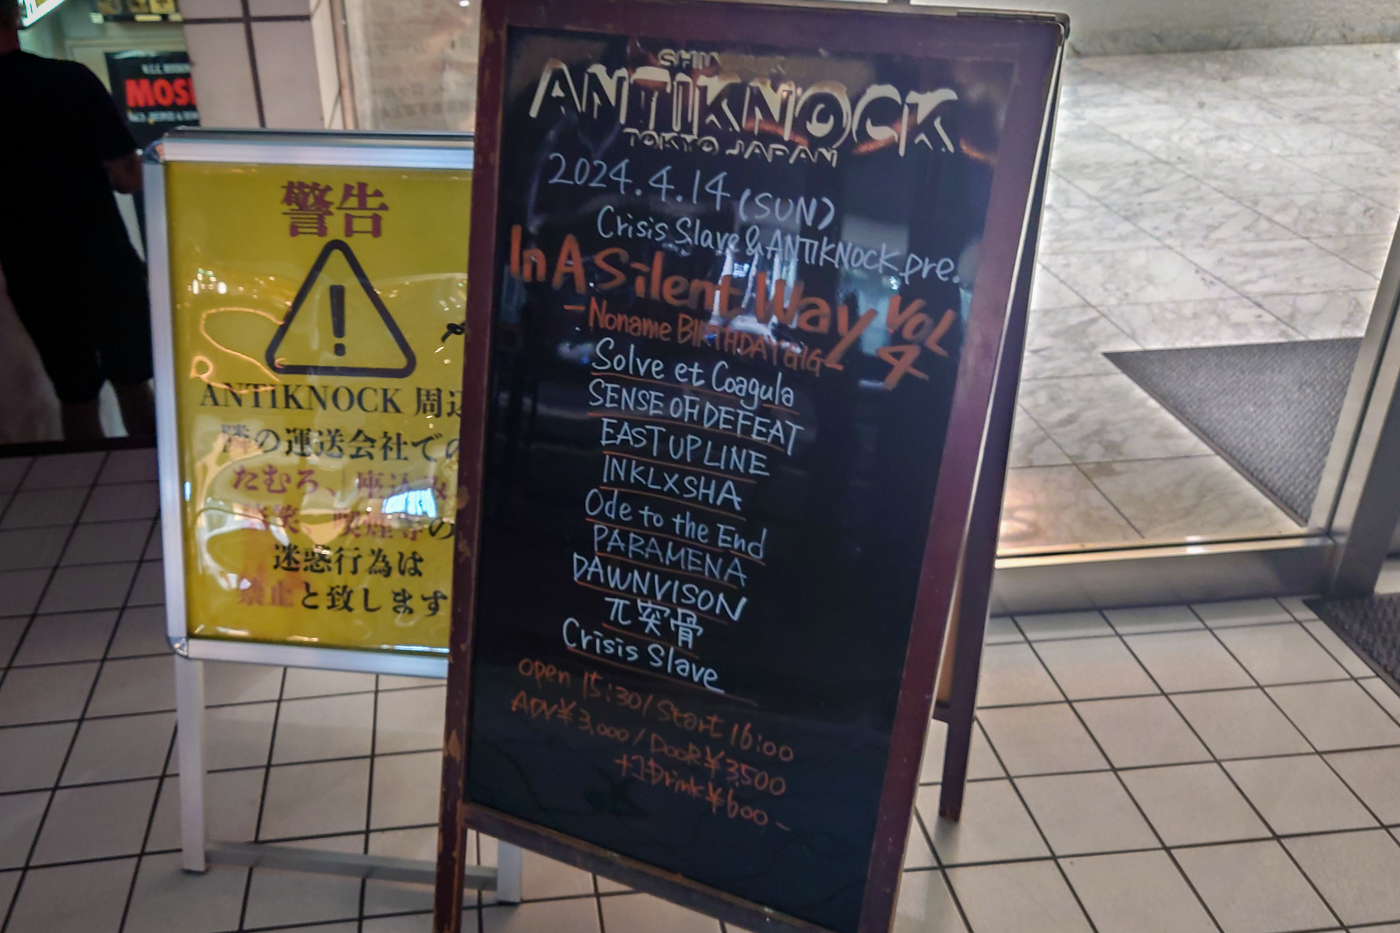 MOS
警告
!
ANTIKNOCK 周辺
隣の運送会社での
たむろ、座込み
喫煙等の
迷惑行為は
禁止と致します
SHIN
ANTIKNOCK
TOKYO JAPAN
2024.4.14 (SUN)
Crisis Slave & ANTIKNOCK pre.
In A Silent Way VOL 4
-Noname BIRTHDAY GIG-
Solve et Coagula
SENSE OF DEFEAT
EAST UPLINE
INKLXSHA
Ode to the End
PARAMENA
DAWNVISON
兀突骨
Crisis Slave
open 15:30 / Start 16:00
ADV ¥3,000 / DOOR ¥3500
Drink ¥600-